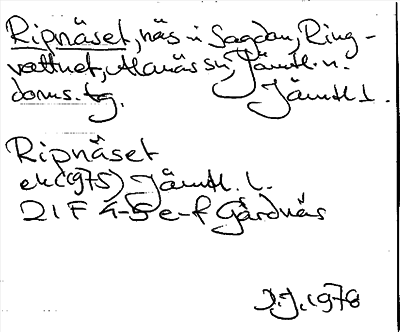 Ripnäset, näs i Sagdan, Ring-
vattnet, Alanäs sn, Jämtl. n.
doms. tg. Jämtl l.
Ripnäset
ek (1975) Jämtl. l.
21 F 4-5 e-f Gårdnäs
J.J. 1978